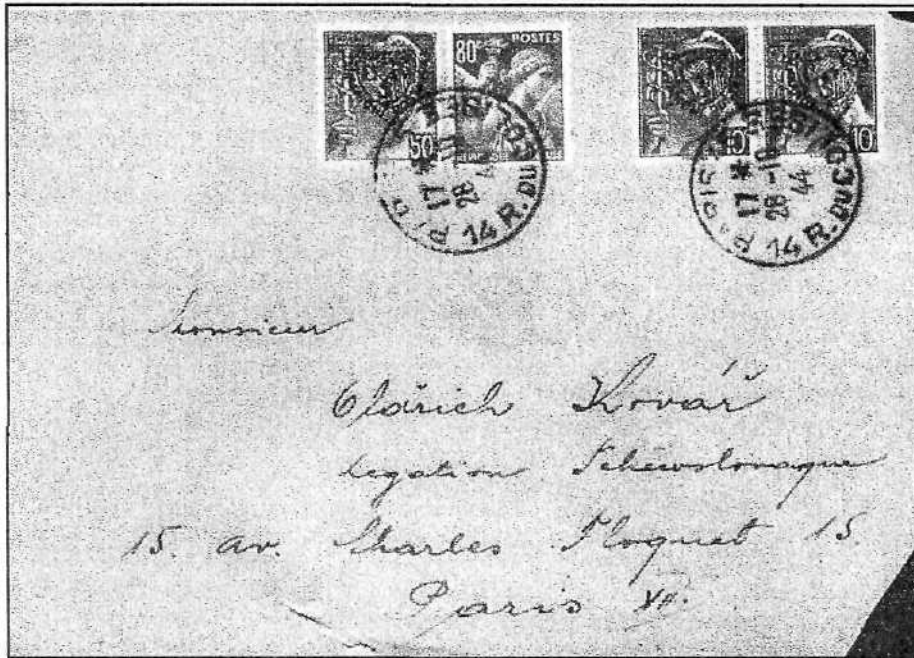 80c POSTES
50c
10
17 * 28 -10 44
14 R. DU
PARIS
17 * 28 -10 44
14 R. DU C
Monsieur
Oldřich Kovář
Legation Tchéwslovaque
15. av. Charles Floquet 15.
Paris VII.